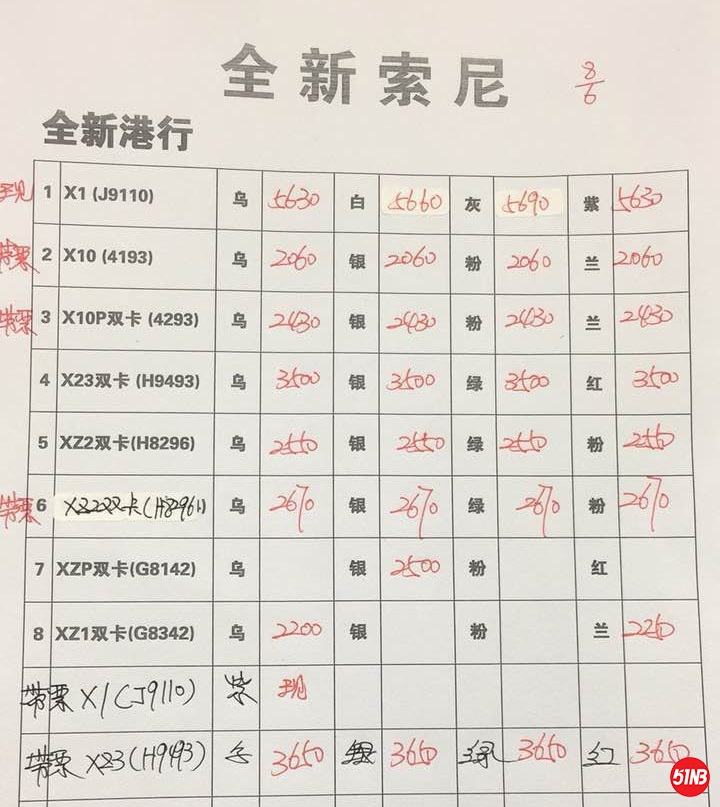 全新索尼 8/6
全新港行
1 X1 (J9110) 乌 5630 白 5660 灰 5690 紫 5630
带票 2 X10 (4193) 乌 2060 银 2060 粉 2060 兰 2060
带票 3 X10P双卡 (4293) 乌 2430 银 2430 粉 2430 兰 2430
4 X23双卡 (H9493) 乌 3500 银 3500 绿 3500 红 3500
5 XZ2双卡(H8296) 乌 2550 银 2550 绿 2550 粉 2550
带票 6 双卡(H8296) 乌 2670 银 2670 绿 2670 粉 2670
7 XZP双卡(G8142) 乌 银 2500 粉 红
8 XZ1双卡(G8342) 乌 2200 银 粉 兰 2250
带票 X1(J9110) 紫
带票 X23(H9493) 3650 3650 绿 3650 红 3650
51NB